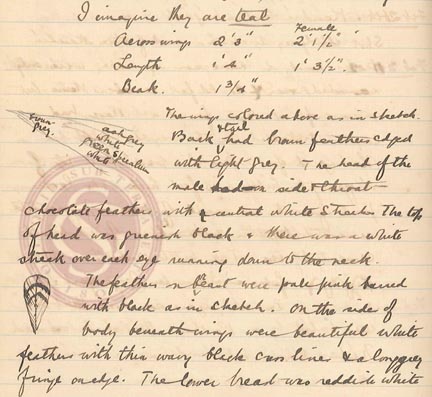 I imagine they are teal
Female
Across wings 2' 3" 2' 1½"
Length 1' 4" 1' 3½".
Beak. 1¾"
The wings colored above as in sketch.
brown
grey.
ash grey
white
green speculum
white
Back & tail had brown feathers edged
with light grey. The head of the
male side & throat
chocolate feathers with central white streaks The top
of head was greenish black & there was a white
streak over each eye running down to the neck.
The feathers on breast were pale pink barred
with black as in sketch. On the side of
body beneath wings were beautiful white
feathers with thin wavy black cross lines & a long grey
fringe on edge. The lower breast was reddish white